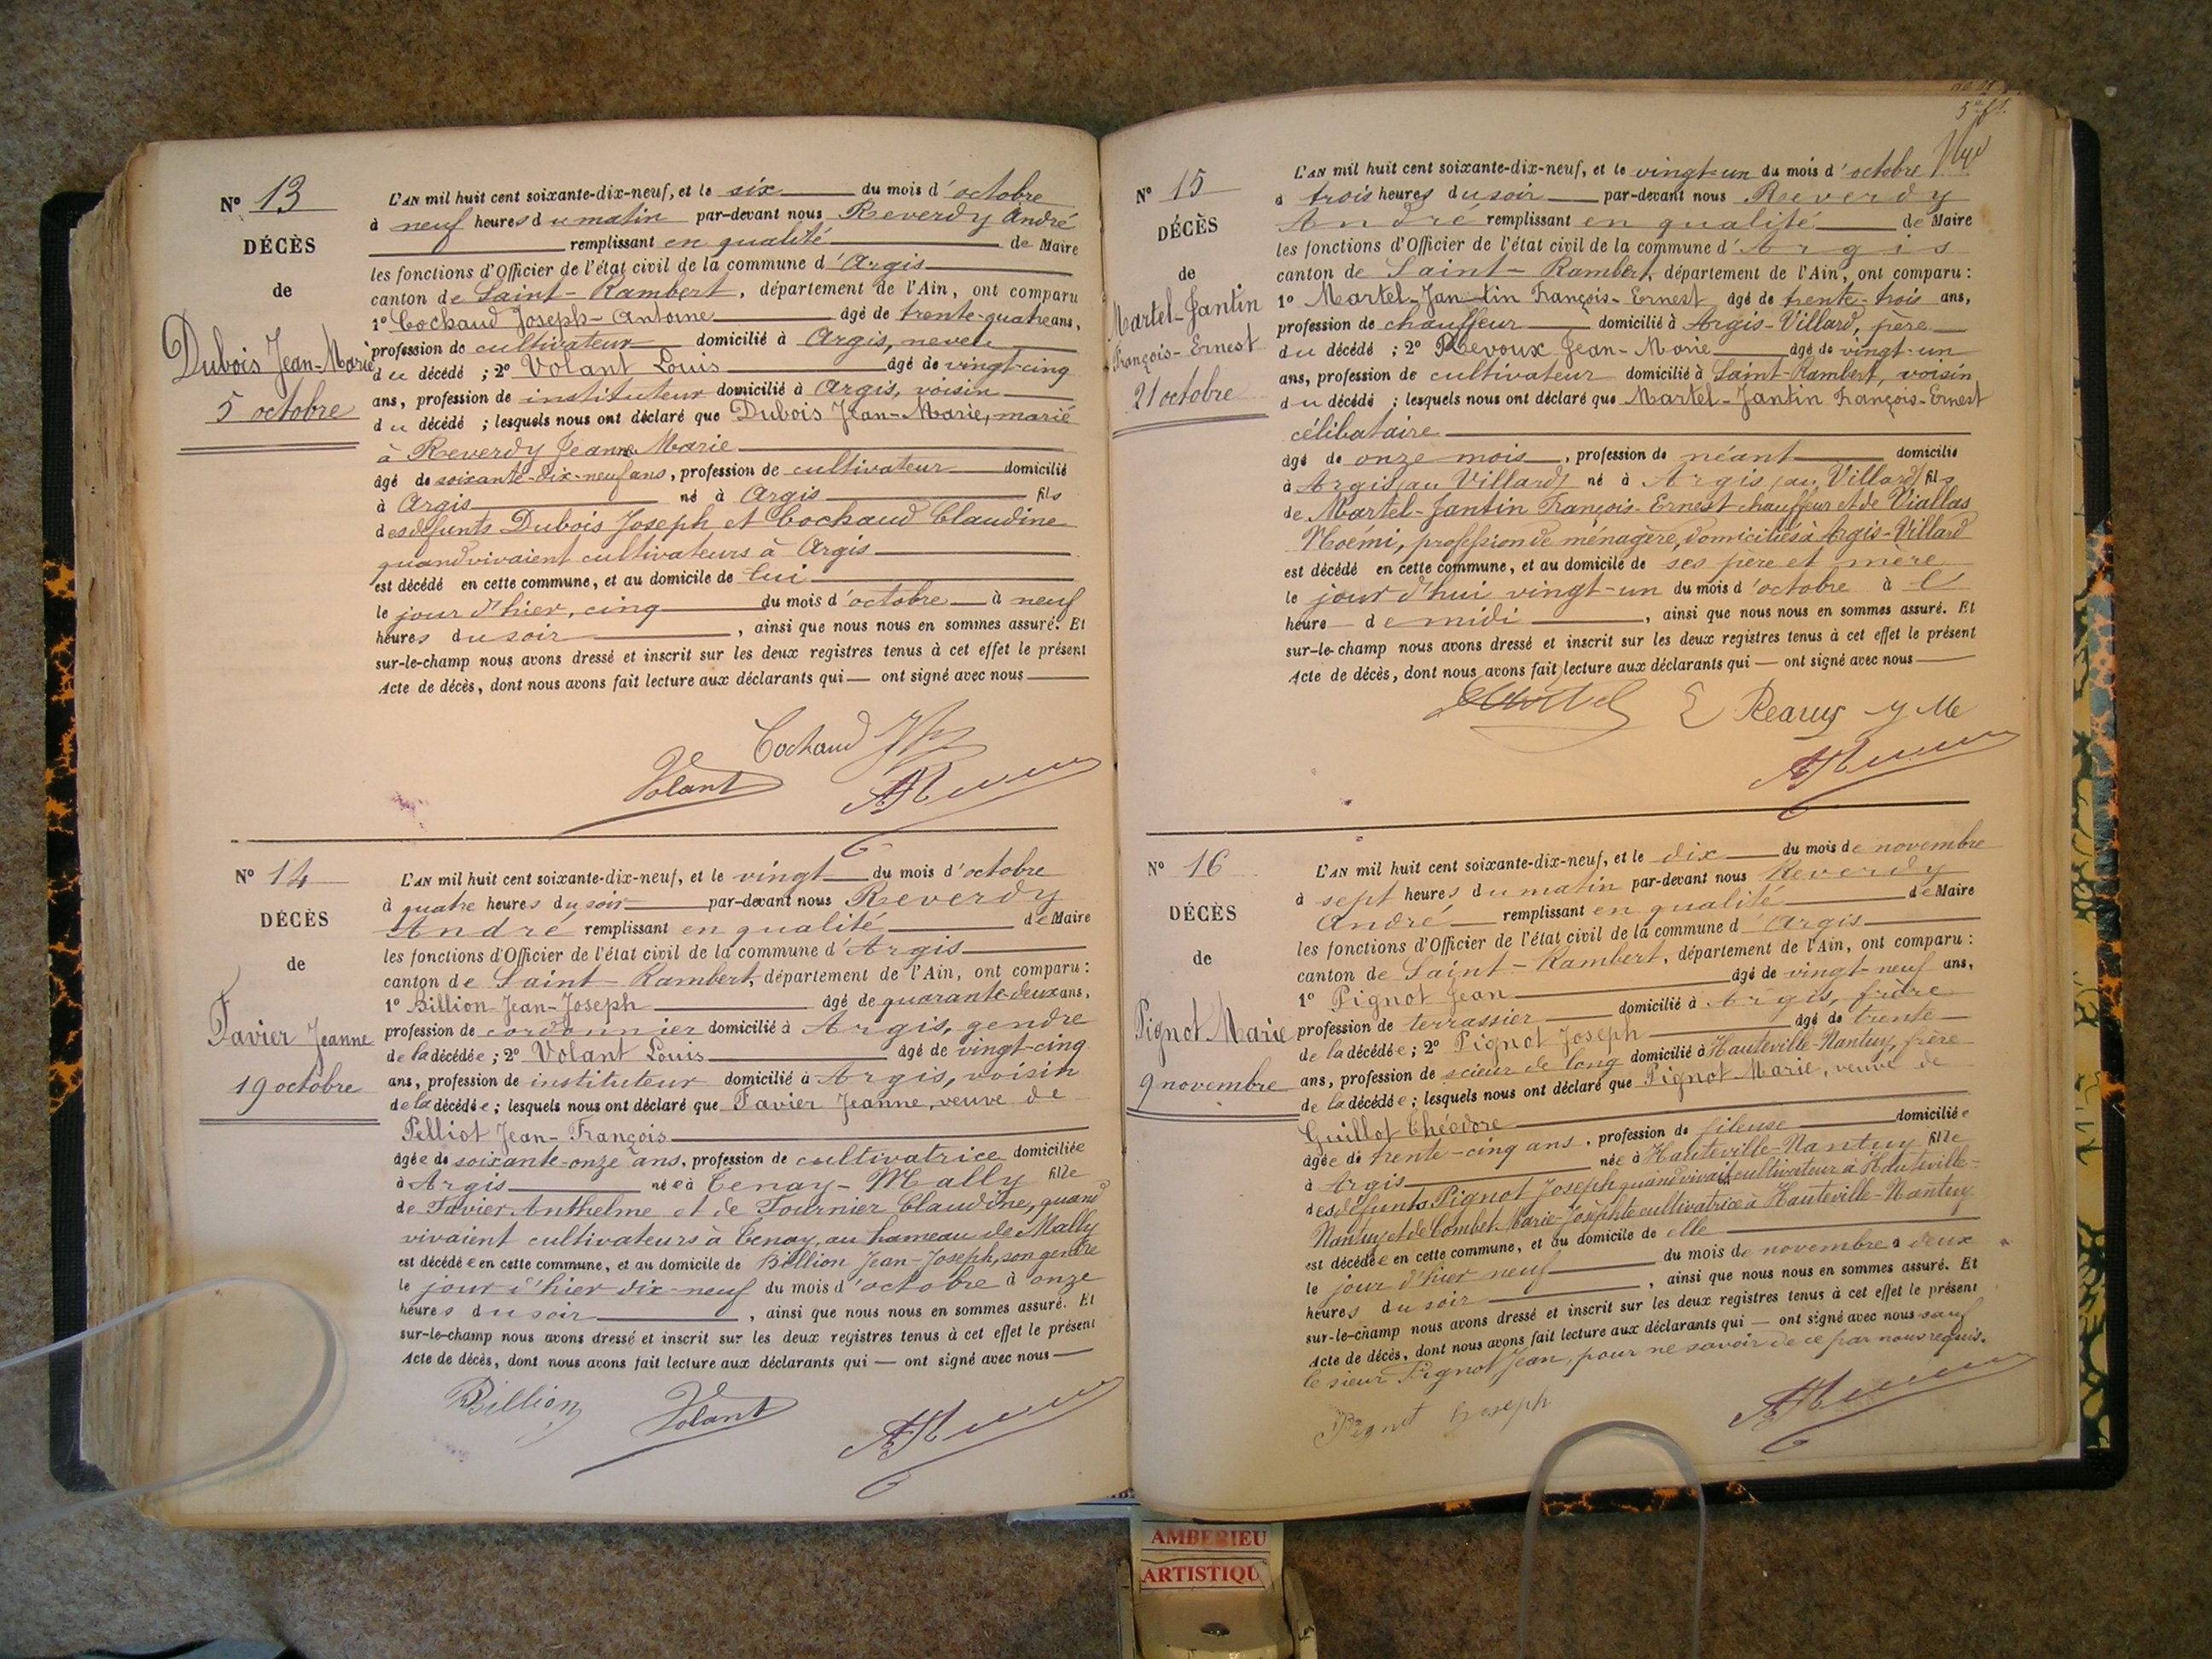 N° 13
DÉCÈS
de
Dubois Jean-Marie
5 octobre
L'AN mil huit cent soixante-dix-neuf, et le six du mois d'octobre
à neuf heures du matin par-devant nous Reverdy André
remplissant en qualité de Maire
les fonctions d'Officier de l'état civil de la commune d'Argis
canton de Saint-Rambert, département de l'Ain, ont comparu
1° Cochaud Joseph-Antoine âgé de trente-quatre ans,
profession de cultivateur domicilié à Argis, neveu
du décédé ; 2° Volant Louis âgé de vingt-cinq
ans, profession de instituteur domicilié à Argis, voisin
du décédé ; lesquels nous ont déclaré que Dubois Jean-Marie, marié
à Reverdy Jeanne Marie
âgé de soixante-dix-neuf ans, profession de cultivateur domicilié
à Argis né à Argis fils
des défunts Dubois Joseph et Cochaud Claudine
quand vivaient cultivateurs à Argis
est décédé en cette commune, et au domicile de lui
le jour d'hier, cinq du mois d'octobre à neuf
heures du soir, ainsi que nous nous en sommes assuré. Et
sur-le-champ nous avons dressé et inscrit sur les deux registres tenus à cet effet le présent
Acte de décès, dont nous avons fait lecture aux déclarants qui — ont signé avec nous
Cochaud
Volant
N° 14
DÉCÈS
de
Favier Jeanne
19 octobre
L'AN mil huit cent soixante-dix-neuf, et le vingt du mois d'octobre
à quatre heures du soir par-devant nous Reverdy
André remplissant en qualité de Maire
les fonctions d'Officier de l'état civil de la commune d'Argis
canton de Saint-Rambert, département de l'Ain, ont comparu :
1° Billion Jean-Joseph âgé de quarante-deux ans,
profession de cordonnier domicilié à Argis, gendre
de la décédée ; 2° Volant Louis âgé de vingt-cinq
ans, profession de instituteur domicilié à Argis, voisin
de la décédée ; lesquels nous ont déclaré que Favier Jeanne, veuve de
Pelliot Jean-François
âgée de soixante-onze ans, profession de cultivatrice domiciliée
à Argis née à Tenay-Mally fille
de Favier Anthelme et de Fournier Claudine, quand
vivaient cultivateurs à Tenay, au hameau de Mally
est décédée en cette commune, et au domicile de Billion Jean-Joseph, son gendre
le jour d'hier dix-neuf du mois d'octobre à onze
heures du soir, ainsi que nous nous en sommes assuré. Et
sur-le-champ nous avons dressé et inscrit sur les deux registres tenus à cet effet le présent
Acte de décès, dont nous avons fait lecture aux déclarants qui — ont signé avec nous
Billion
Volant
N° 15
DÉCÈS
de
Martel-Jantin
François-Ernest
21 octobre
L'AN mil huit cent soixante-dix-neuf, et le vingt-un du mois d'octobre
à trois heures du soir par-devant nous Reverdy
André remplissant en qualité de Maire
les fonctions d'Officier de l'état civil de la commune d'Argis
canton de Saint-Rambert, département de l'Ain, ont comparu :
1° Martel-Jantin François-Ernest âgé de trente-trois ans,
profession de chauffeur domicilié à Argis-Villard, père
du décédé ; 2° Revoux Jean-Marie âgé de vingt-un
ans, profession de cultivateur domicilié à Saint-Rambert, voisin
du décédé ; lesquels nous ont déclaré que Martel-Jantin François-Ernest
célibataire
âgé de onze mois, profession de néant domicilié
à Argis (au Villard) né à Argis (au Villard) fils
de Martel-Jantin François-Ernest chauffeur et de Viallas
Noémi, profession de ménagère, domiciliés à Argis-Villard
est décédé en cette commune, et au domicile de ses père et mère
le jour d'hui vingt-un du mois d'octobre à l'
heure de midi, ainsi que nous nous en sommes assuré. Et
sur-le-champ nous avons dressé et inscrit sur les deux registres tenus à cet effet le présent
Acte de décès, dont nous avons fait lecture aux déclarants qui — ont signé avec nous
N° 16
DÉCÈS
de
Pignot Marie
9 novembre
L'AN mil huit cent soixante-dix-neuf, et le dix du mois de novembre
à sept heures du matin par-devant nous Reverdy
André remplissant en qualité de Maire
les fonctions d'Officier de l'état civil de la commune d'Argis
canton de Saint-Rambert, département de l'Ain, ont comparu :
1° Pignot Jean âgé de vingt-neuf ans,
profession de terrassier domicilié à Argis, frère
de la décédée ; 2° Pignot Joseph âgé de trente
ans, profession de scieur de long domicilié à Hauteville-Nantuy, frère
de la décédée ; lesquels nous ont déclaré que Pignot Marie, veuve de
Guillot Théodore
âgée de trente-cinq ans, profession de fileuse domiciliée
à Argis née à Hauteville-Nantuy fille
des défunts Pignot Joseph quand vivait cultivateur à Hauteville-
Nantuy et de Combet Marie-Josèphte cultivatrice à Hauteville-Nantuy
est décédée en cette commune, et au domicile de elle
le jour d'hier neuf du mois de novembre à deux
heures du soir, ainsi que nous nous en sommes assuré. Et
sur-le-champ nous avons dressé et inscrit sur les deux registres tenus à cet effet le présent
Acte de décès, dont nous avons fait lecture aux déclarants qui — ont signé avec nous sauf
le sieur Pignot Jean, pour ne savoir de ce par nous requis.
Pignot Joseph
AMBERIEU
ARTISTIQU